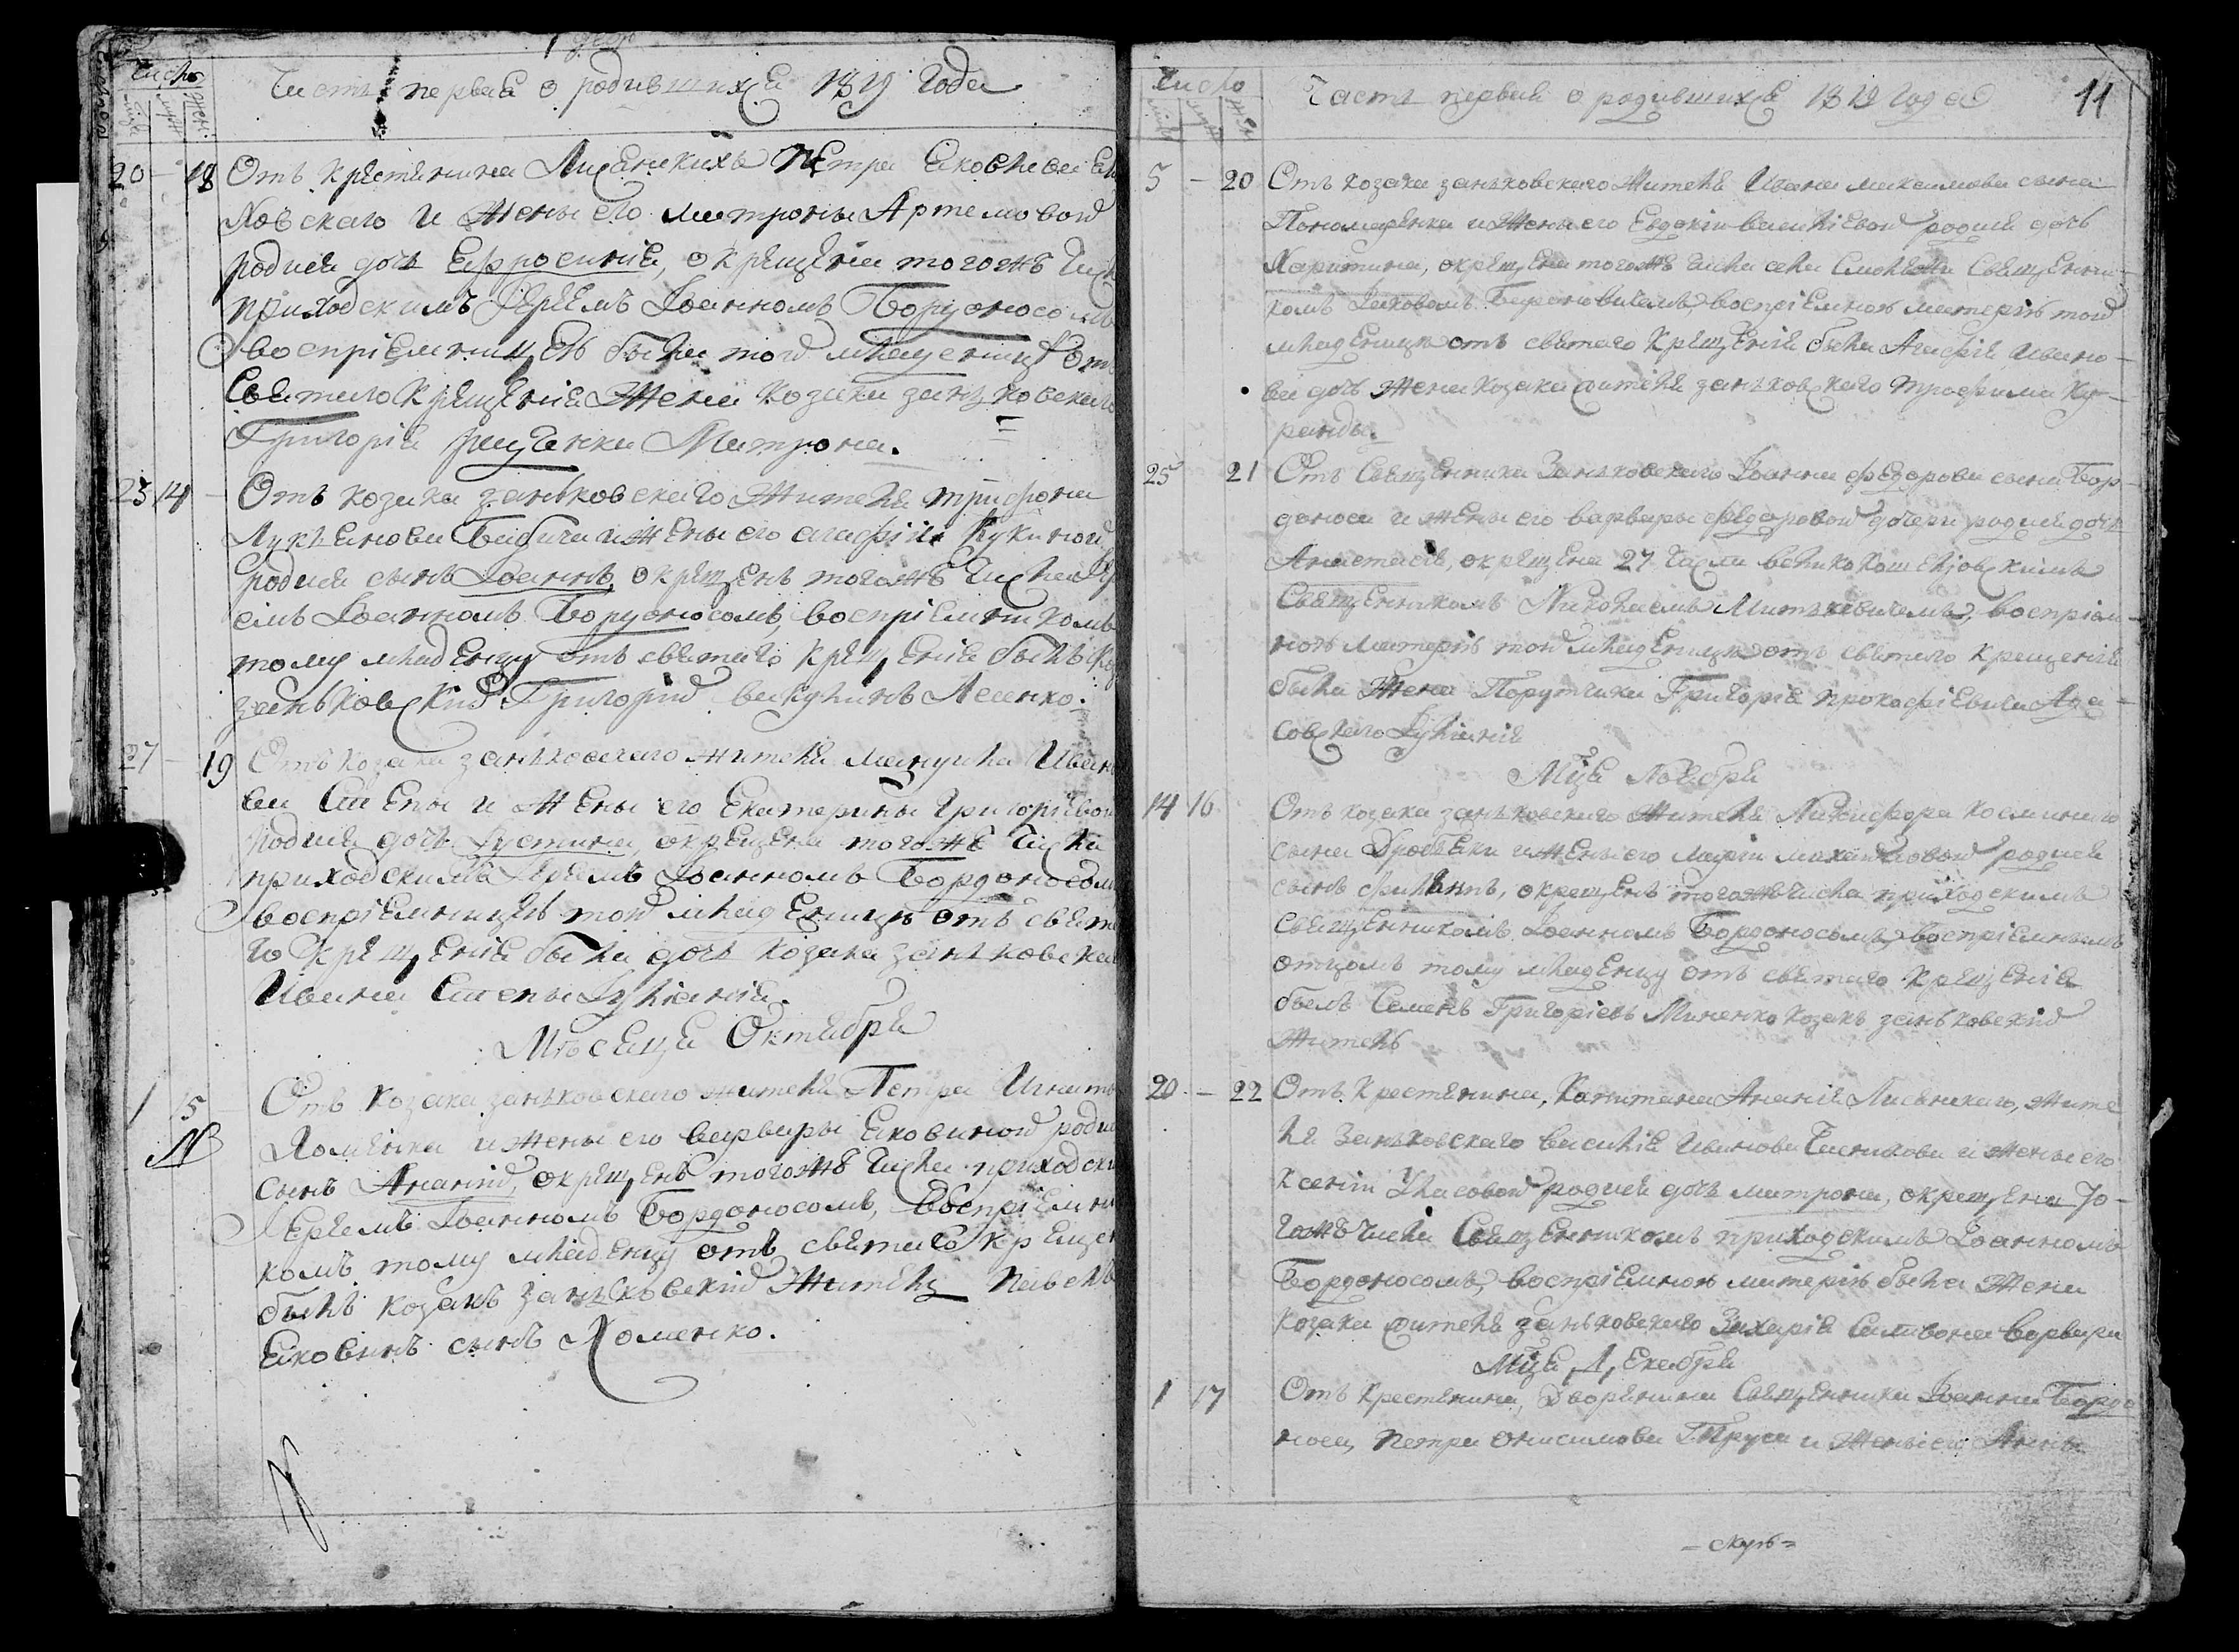 Число
Часть первая о родившихся 1819 года
муж: жен:
20 – 18 Отъ крестянина Лисаникихъ Петра Яковлева
ховскаго и жены его Матроны Артемовой
родися дочь Ефросинія, окрещена тогожъ числа
приходскимъ Іереемъ Іоанномъ Бордоносомъ
воспріемницею была той младеницѣ отъ
святаго крещенія жена козака заньковскаго
Григорія Матрона.
23 14 – Отъ козака заньковскаго жителя Трифона
Лукьянова Бабича и жены его Агафіи Лукиной
родися сынъ Іоаннъ, окрещенъ тогожъ числа Іер
емъ Іоанномъ Бордоносомъ, воспріемникомъ
тому младенцу отъ святаго крещенія былъ
заньковскій Григорій Лесенко.
27 – 19 Отъ козака заньковскаго жителя Ивано
ва Сшепы и жены его Екатерины Григоріевой
родися дочь Іустина окрещена тогожъ числа
приходскимъ Іереемъ Іоанномъ Бордоносомъ
воспріемницею той младеницѣ отъ свята
го крещенія была дочь козака заньковска
Ивана Сшепы Іуліанія.
Мѣсяца Октября
1 15 Отъ козака заньковскаго жителя Петра Игнать
Хоменка и жены его Варвары Яковиной родися
сынъ Ананій, окрещенъ тогожъ числа приходски
Іереемъ Іоанномъ Бордоносомъ, воспріемни
комъ тому младенцу отъ святаго крещен
былъ козакъ заньковскій житель Павелъ
Яковинъ сынъ Хоменко.
Число
Часть первая о родившихся 1819 года 11
5 – 20 Отъ козака заньковскаго жителя Ивана Максимова сына
Пономаренка и жены его Евдокіи Василіевой родися дочь
Харитина, окрещена тогожъ числа села Священни-
комъ Яковомъ воспріемною матерію той
младеницѣ отъ святаго крещенія была Агафія Ивано-
ва дочь жена козака жителя заньковскаго Трофима Ку-
ранды.
25 21 Отъ Священника Заньковскаго Іоанна Федорова сына Бор-
доноса и жены его Варвары Федоровой дочери родися дочь
Анастасія, окрещена 27 числа
Священникомъ Николаемъ воспріем-
ною матерію той младеницѣ отъ святаго крещенія
была жена Порутчика Григорія Прокофіевича Аза-
совскаго Іуліанія
Мца Ноября
14 16 Отъ козака заньковскаго жителя Никифора Космина
сына Дробязки и жены его Маріи Михайловой родися
сынъ Филиппъ, окрещенъ тогожъ числа приходскимъ
Священникомъ Іоанномъ Бордоносомъ, воспріемнымъ
отцомъ тому младенцу отъ святаго крещенія
былъ Семенъ Григоріевъ Миненко козакъ заньковскій
житель
20 – 22 Отъ крестянина, Капитана Ананія Лисеникаго, жите
ля Заньковскаго Василія Иванова Чесникова и жены его
Ксеніи Уласовой родися дочь Матрона, окрещена то-
гожъ числа Священникомъ приходскимъ Іоанномъ
Бордоносомъ, воспріемною матерію была жена
козака жителя заньковскаго Захарія Варвара
Мца Декабря
1 17 Отъ крестянина, Дворянина Священника Іоанна Бордо
носа, Петра Онисимова Труса и жены его Анны